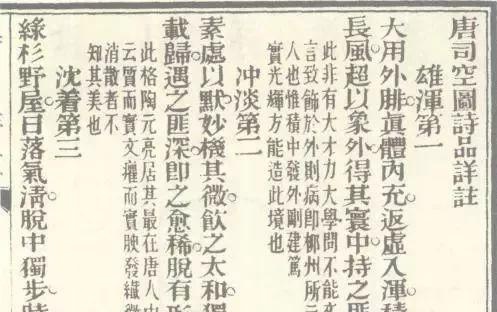 唐司空圖詩品詳註
雄渾第一
大用外腓眞體內充返虛入渾積
長風超以象外得其寰中持之匪
此非有大才力大學問不能
言致飾於外則病卽柳州所
人也惟積中發外剛建篤
實光輝方能造此境也
冲淡第二
素處以默妙機其微飮之太和獨
載歸遇之匪深卽之愈稀脫有形
此格陶元亮居其最在唐人中
云質而實文癯而實腴發纖
消散者不
知其美也
沈着第三
綠杉野屋日落氣淸脫中獨步時